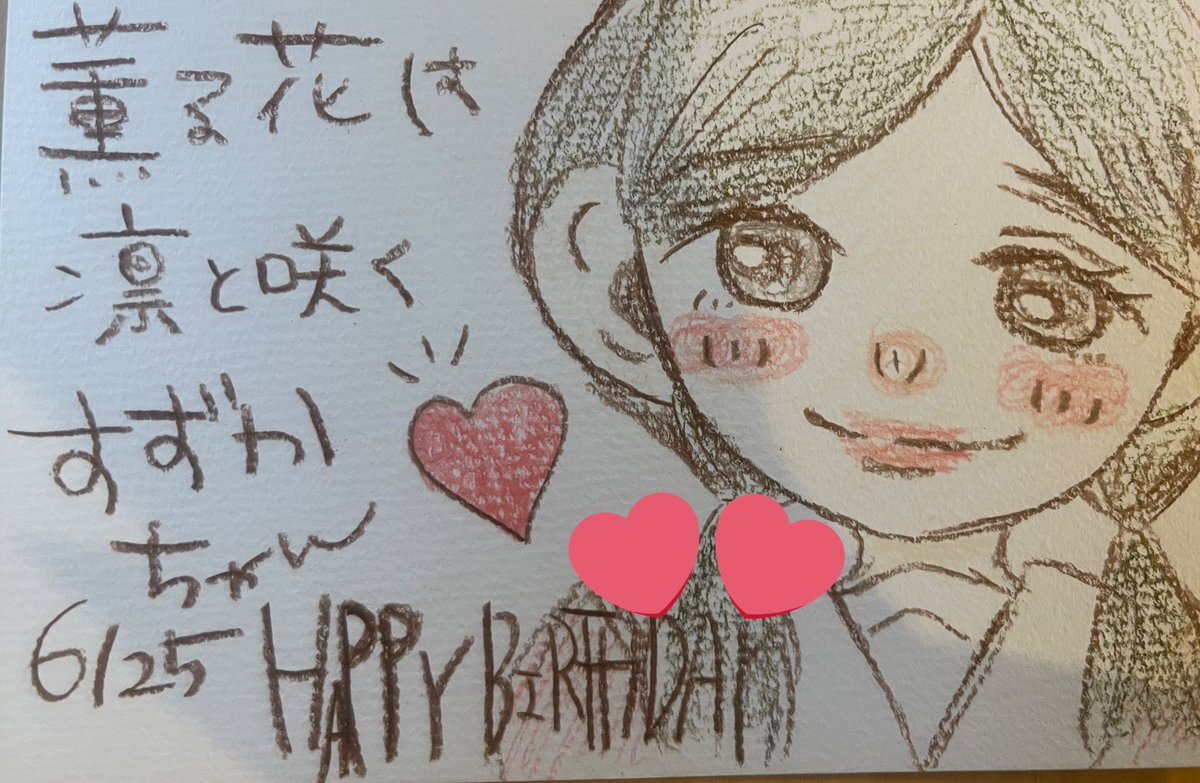 薫る花は
凛と咲く
すずか
ちゃん
6/25 HAPPY BIRTHDAY